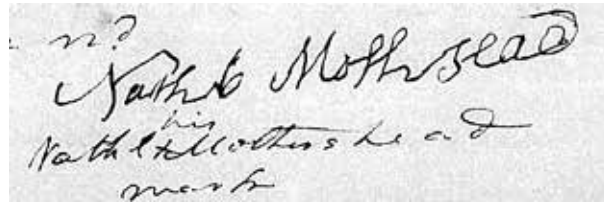 nd
Nathl Mothershead
his
Nathl X Mothershead
mark